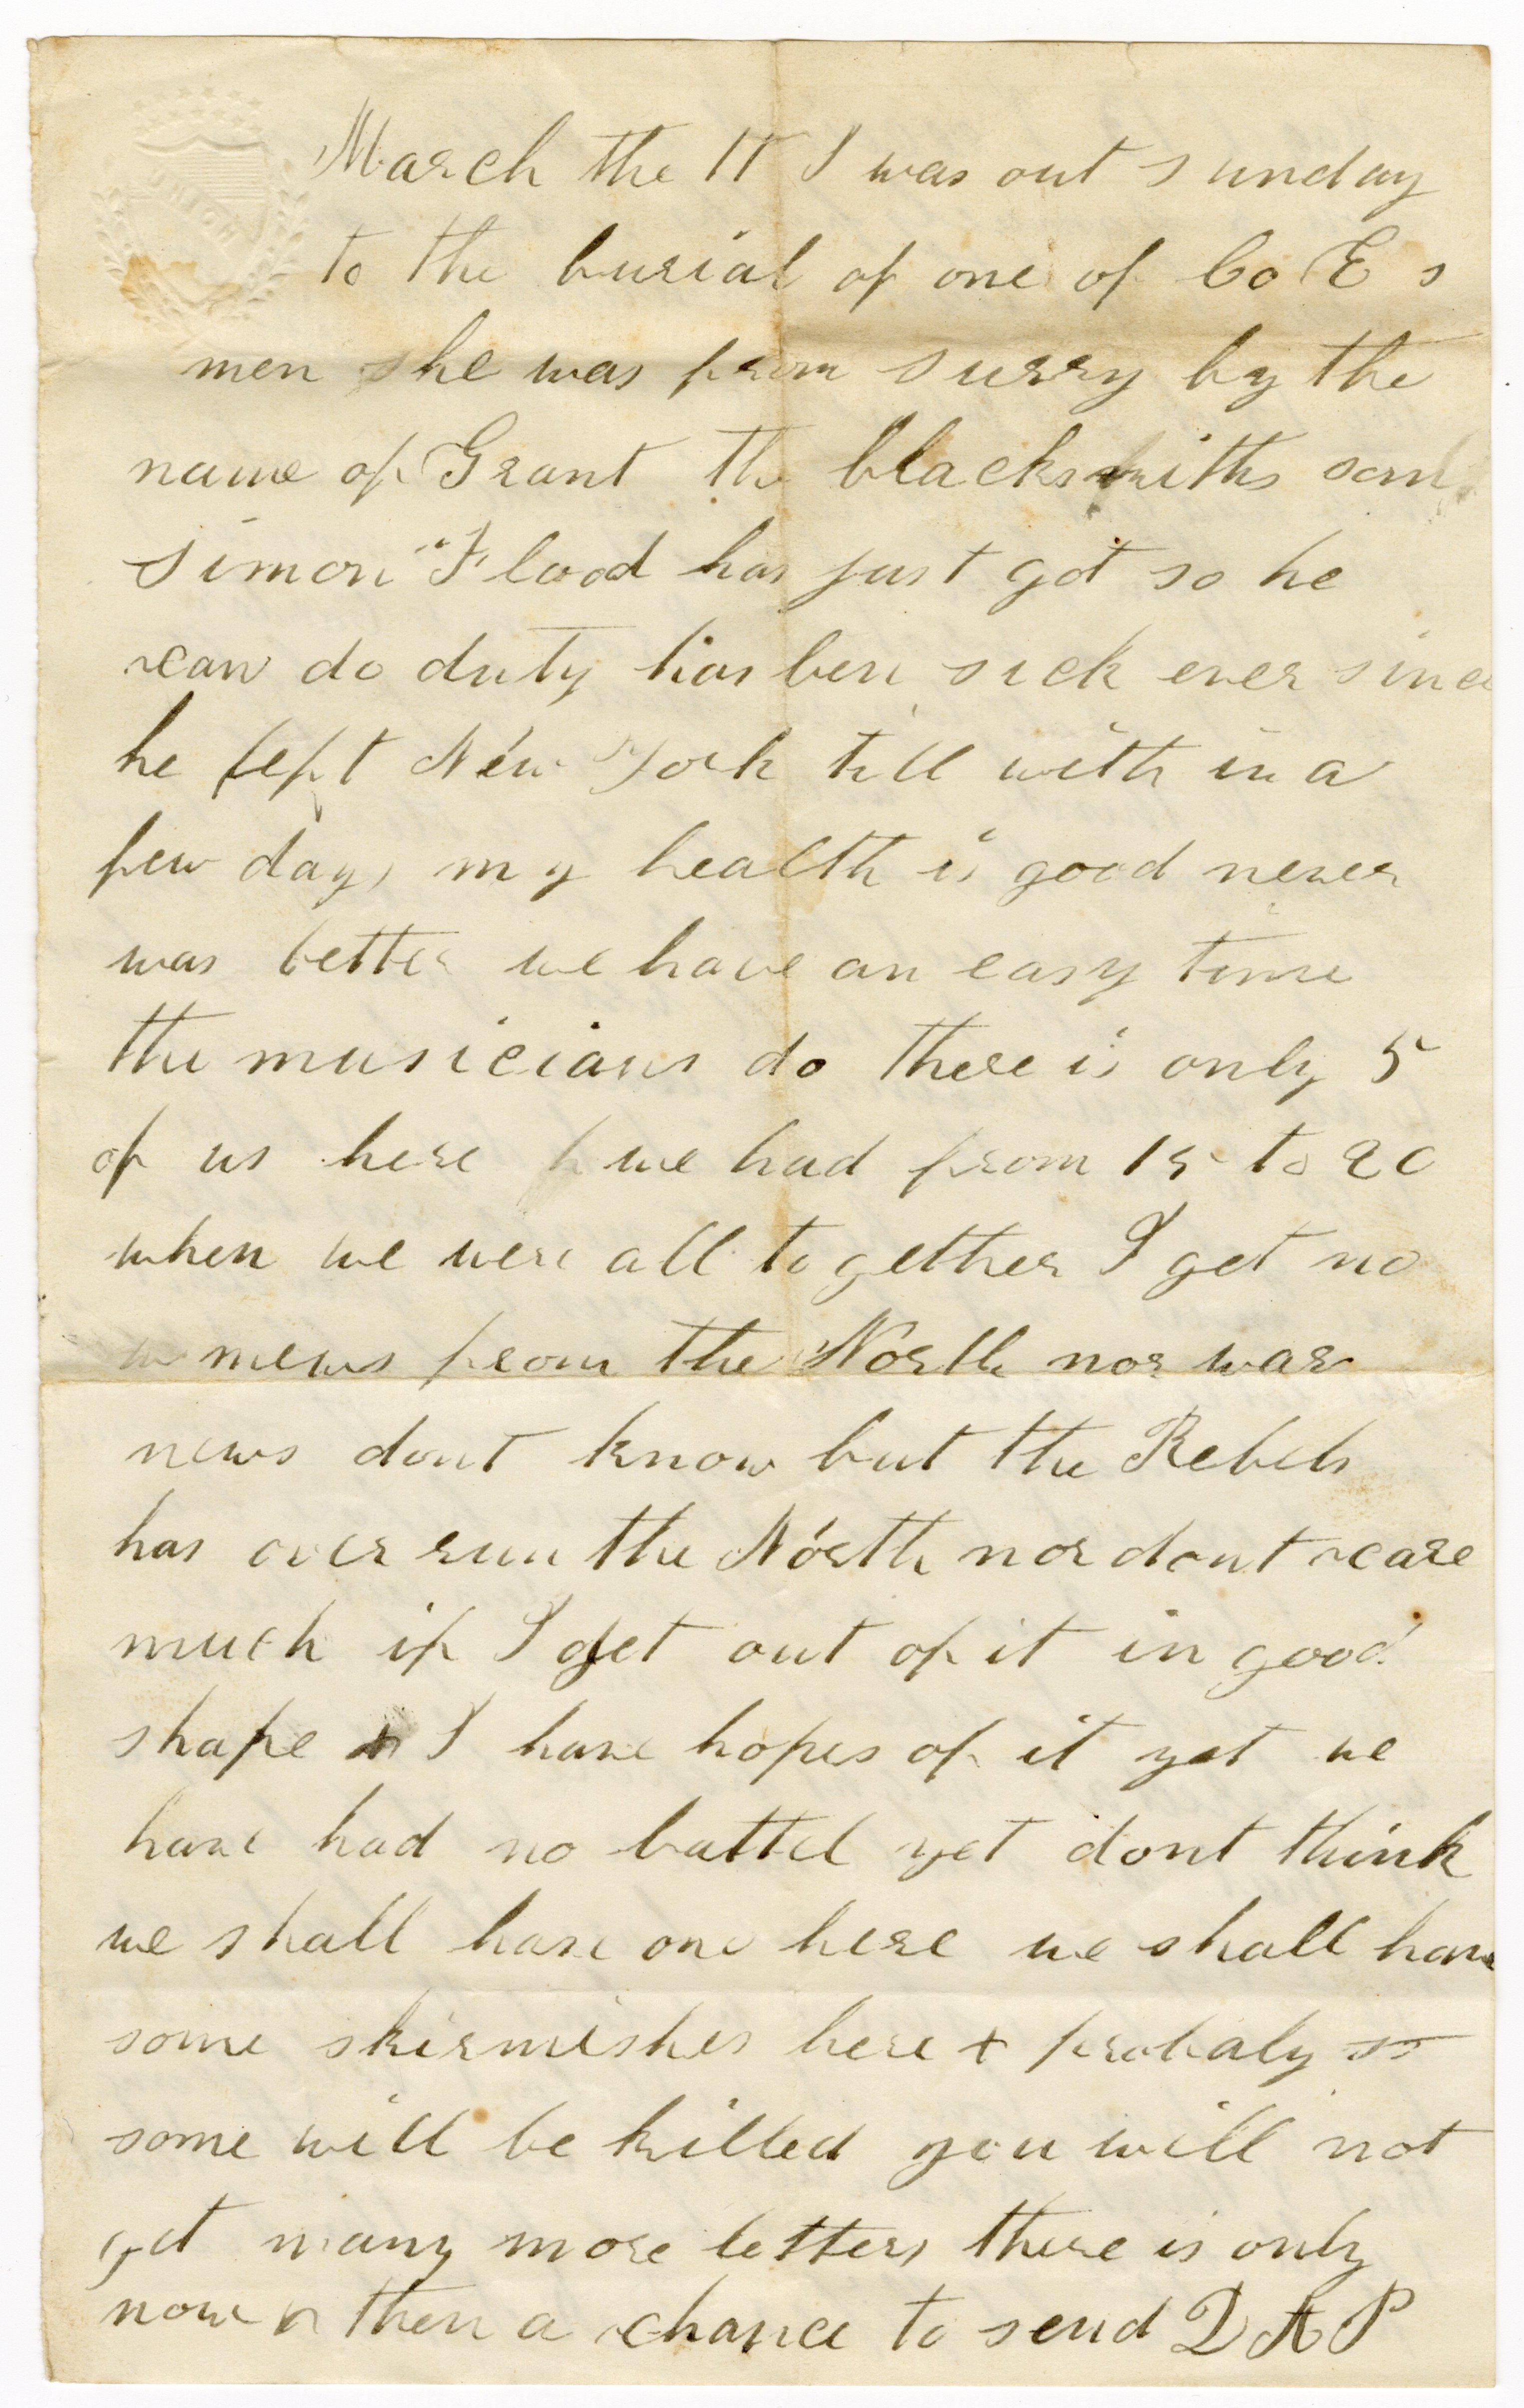 UNION
March the 17 I was out sunday
to the burial of one of Co E s
men he was from surry by the
name of Grant the blacksmiths son
simon Flood has just got so he
can do duty has ben sick ever since
he left New York till with in a
few days my health is good never
was better we have an easy time
the musicians do there is only 5
of us here we had from 15 to 20
when we were all to gether I get no
news from the North nor war
news dont know but the Rebels
has over run the North nor dont care
much if I get out of it in good
shape & I have hopes of it yet we
have had no battel yet dont think
we shall have one here we shall have
some skirmishes here & probaly
some will be killed you will not
get many more letters there is only
now n then a chance to send D A P